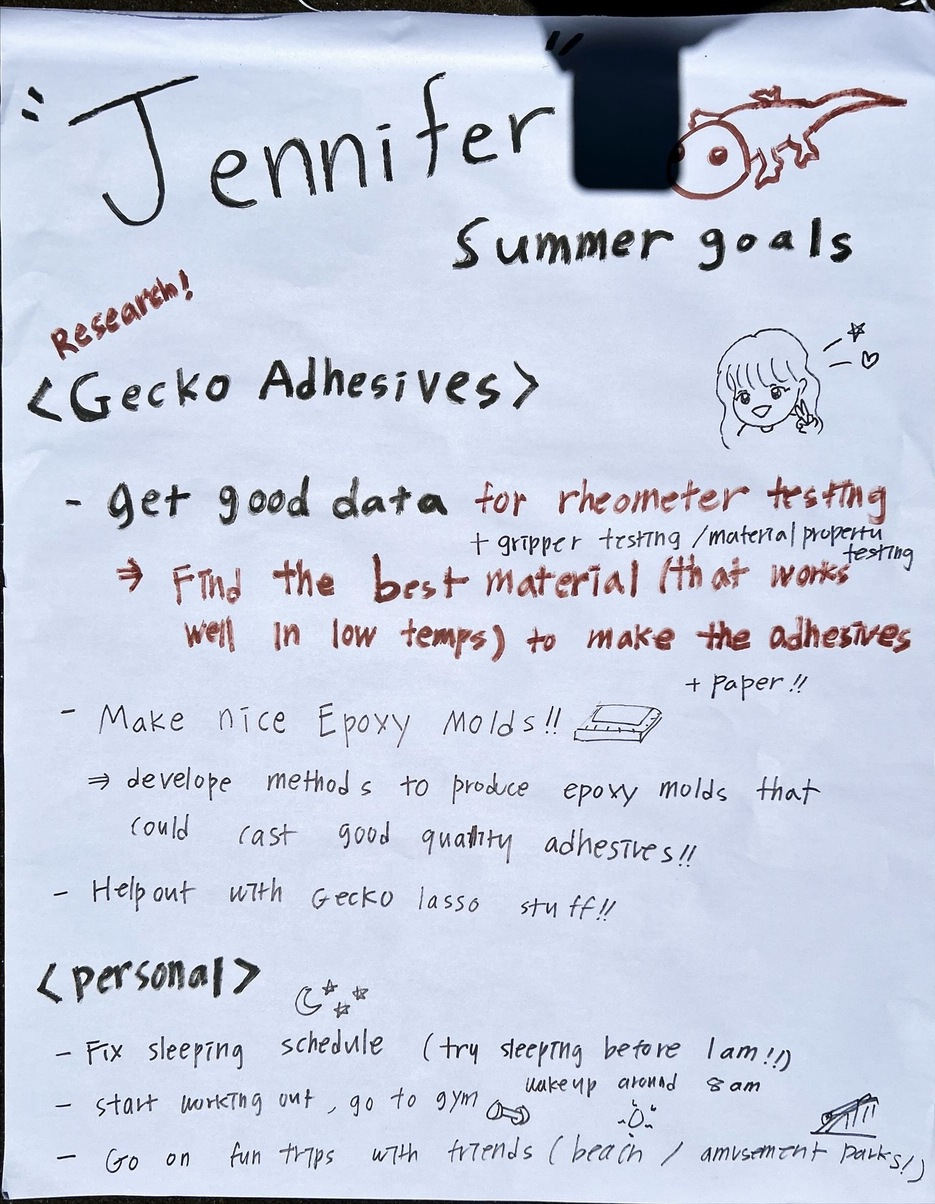 "Jennifer"
Summer goals
Research!
<Gecko Adhesives>
- get good data for rheometer testing
+ gripper testing / material property
testing
⇒ Find the best material (that works
well in low temps) to make the adhesives
+ paper!!
- Make nice Epoxy Molds!!
⇒ develope methods to produce epoxy molds that
could cast good quality adhesives!!
- Help out with Gecko lasso stuff!!
<personal>
- Fix sleeping schedule (try sleeping before 1am!!)
wake up around 8am
- start working out, go to gym
- Go on fun trips with friends (beach / amusement parks!)